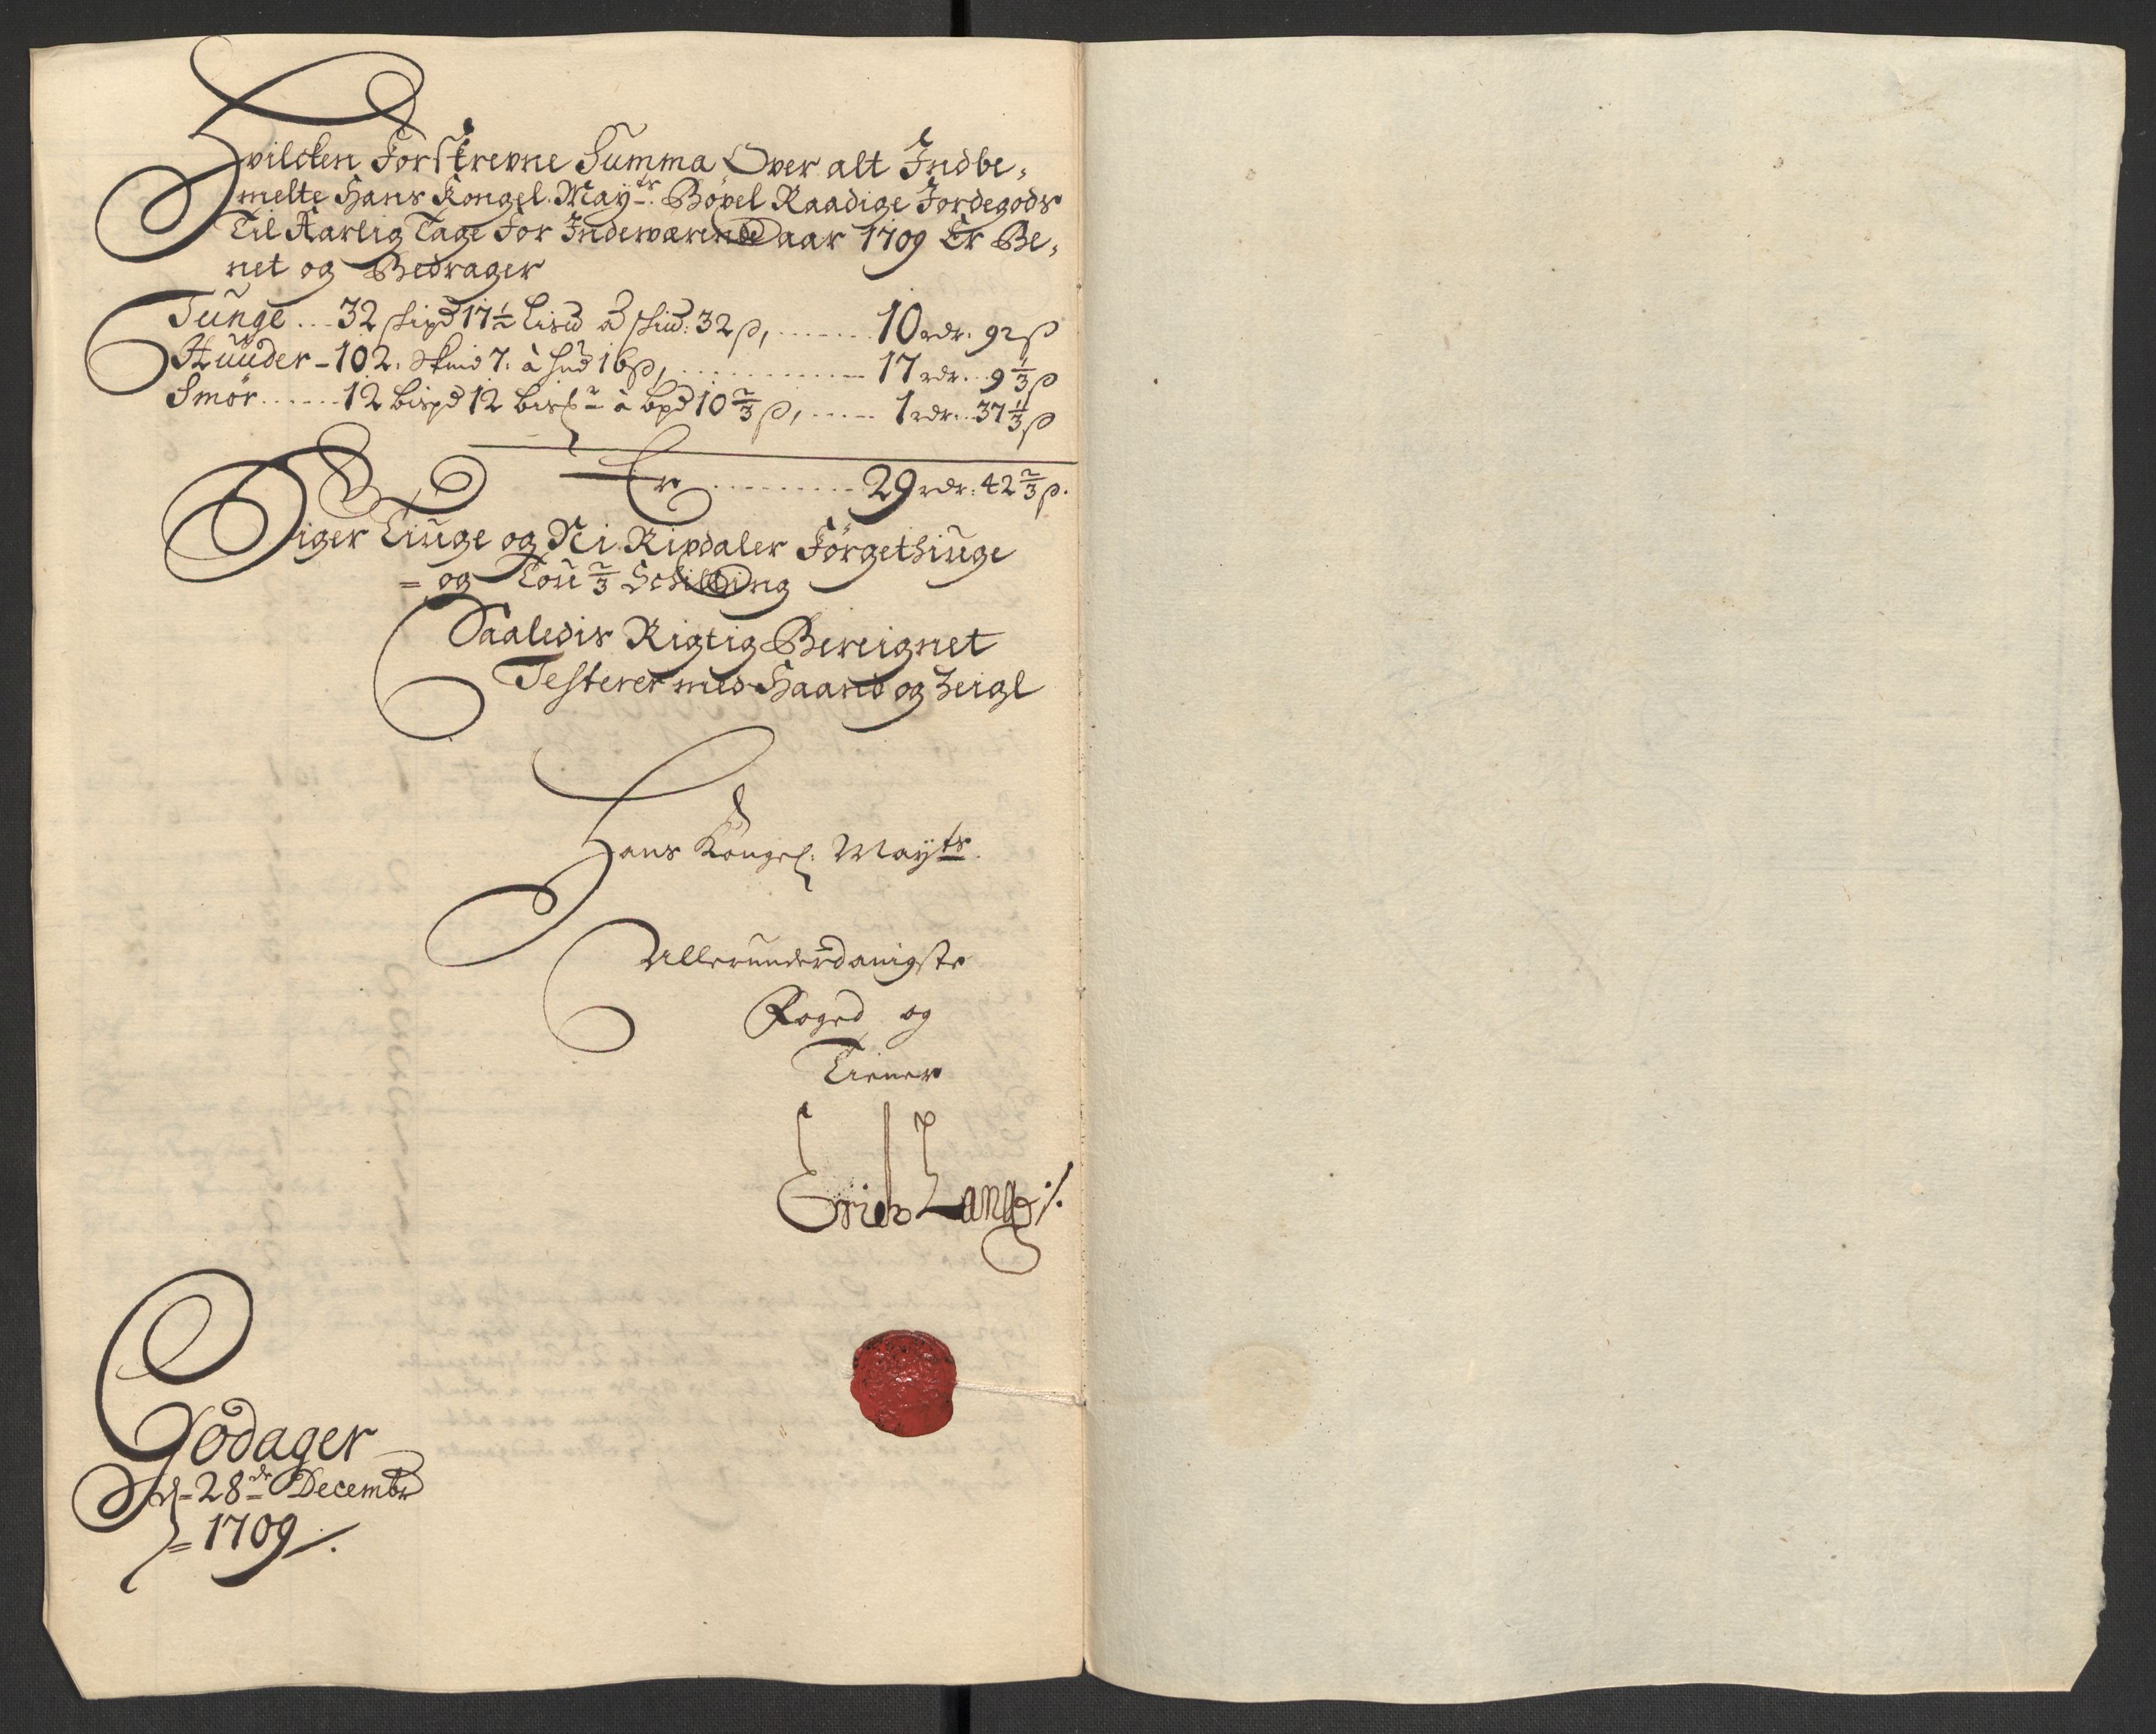 Hvilcken Forskrevne Summa Over alt Indbe,
melte Hans Kongel. May.ts Böxel Raadige Jordegods
Til Aarlig Tage For Indeværende aar 1709 Er Be,
net og Bedrager
Tunge ... 32 skipd 17½ Lisd à skiud: 32 β, ...... 10 rdr. 92 β
Huuder - 102. skind 7. à hud 16 β, ............ 17 rdr. 9⅓ β
Smör ...... 12 bispd 12 à bpd 10⅔ β, ..... 1 rdr. 37⅓ β
Er .......... 29 rdr: 42⅔ β.
Siger Tiuge og Ni Rixdaler Förgethiuge
= og Tou ⅔ Schilling
Saaledis Rigtig Bereignet
Testerer med Haand og Zeigl
Hans Kongel: Mayts.
Allerunderdanigste
Foged og
Tiener
Erich Lang ./.
Godager
d = 28de Decembr
= 1709 /.